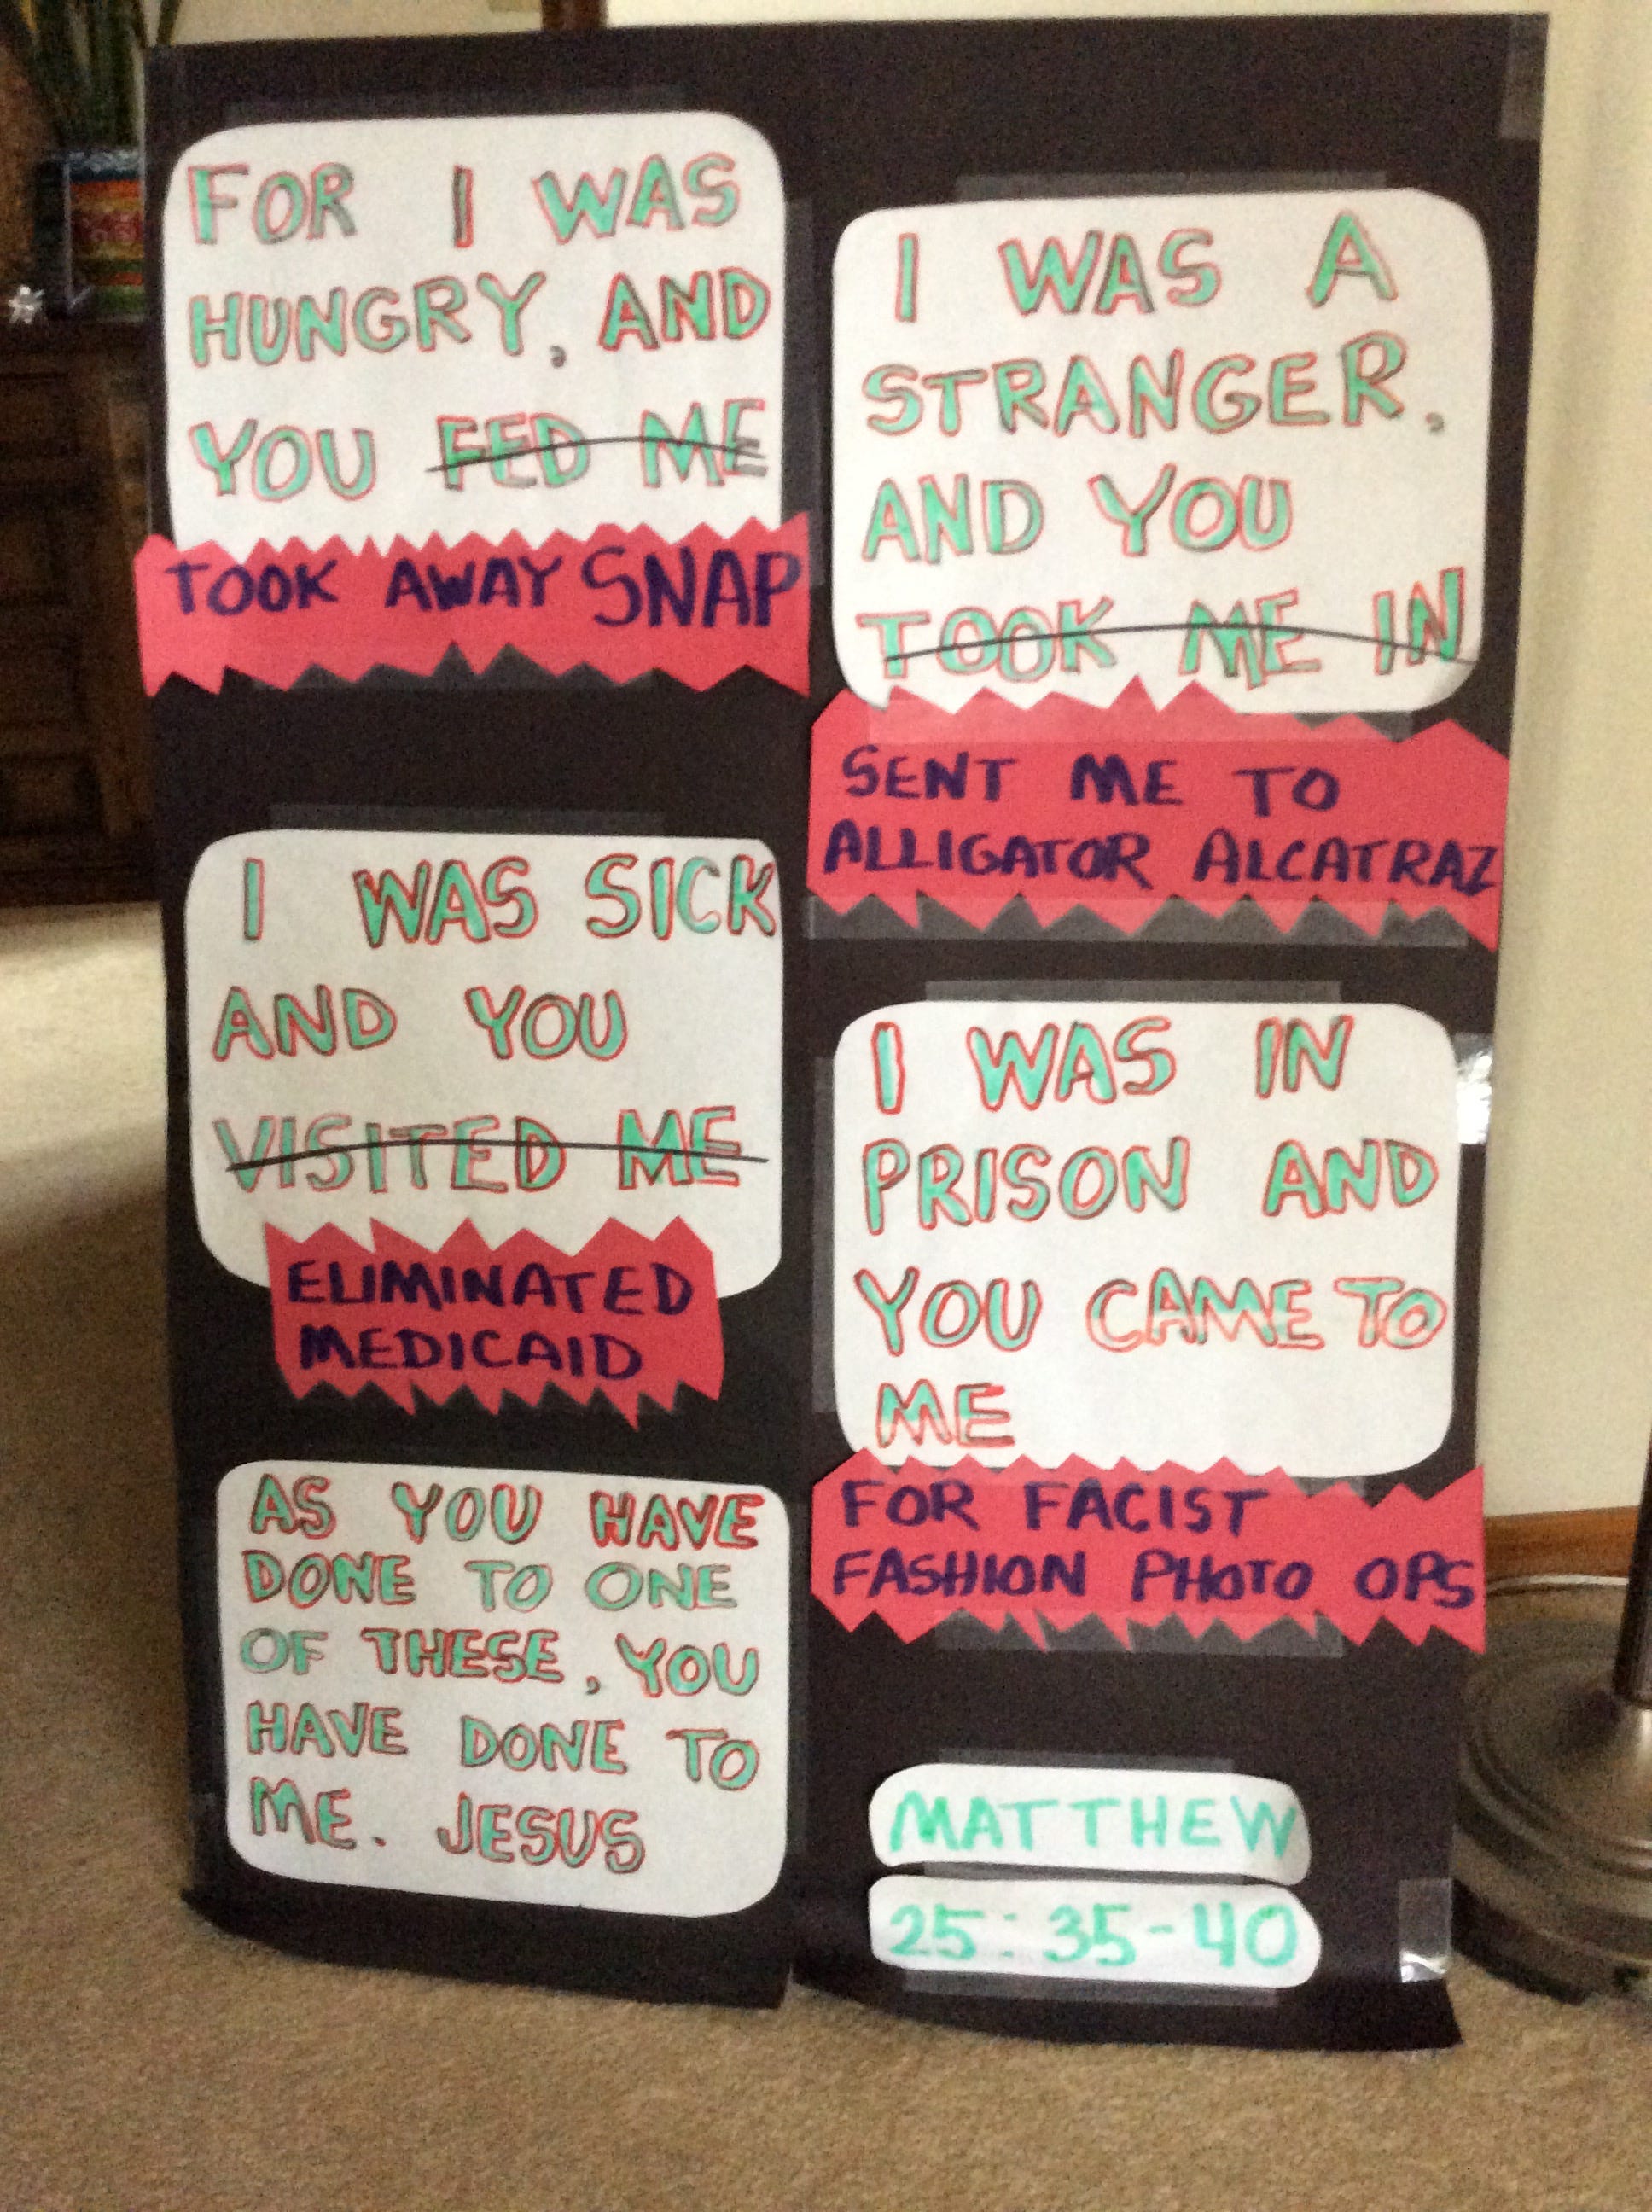 FOR I WAS
HUNGRY, AND
YOU FED ME
TOOK AWAY SNAP
I WAS A
STRANGER,
AND YOU
TOOK ME IN
SENT ME TO
ALLIGATOR ALCATRAZ
I WAS SICK
AND YOU
VISITED ME
ELIMINATED
MEDICAID
I WAS IN
PRISON AND
YOU CAME TO
ME
FOR FACIST
FASHION PHOTO OPS
AS YOU HAVE
DONE TO ONE
OF THESE, YOU
HAVE DONE TO
ME. JESUS
MATTHEW
25:35-40